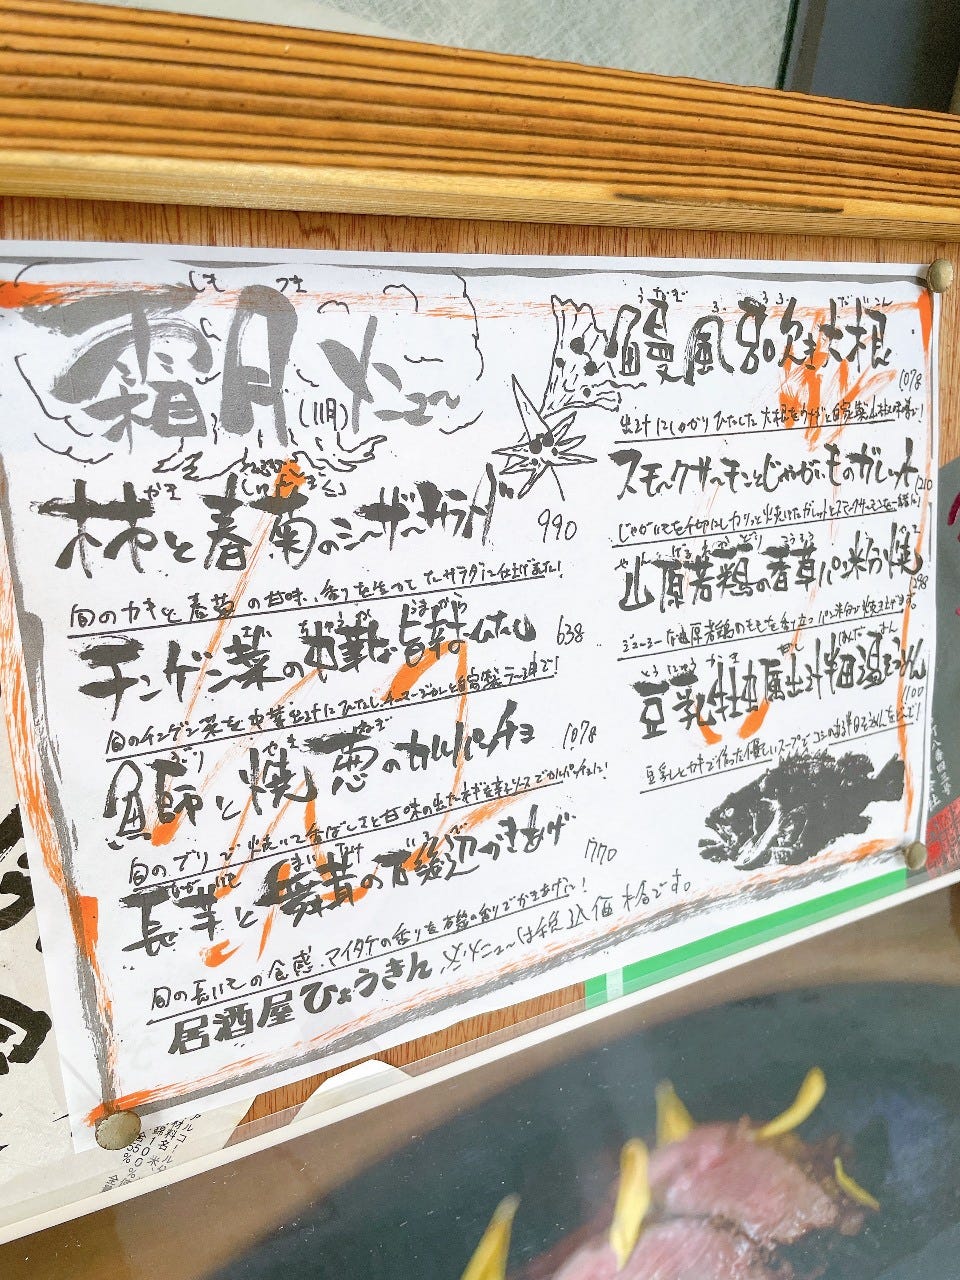 しも つき
霜月メニュー
(11月)
かき しゅんぎく
柿と春菊のシーザーサラダ 990
旬のカキと春菊の甘味、香りを生かしたサラダに仕上げました!
チンゲン菜の中華旨辛ひたし 638
旬のチンゲン菜を中華出汁にひたし、チャーシューと自家製ラー油で!
ぶり やき ねぎ
鰤と焼葱のカルパッチョ 1078
旬のブリで焼いて香ばしさと甘味の出たネギを香味ソースでカルパッチョに!
長芋と舞茸の磯辺かきあげ 770
旬の長いもの食感、マイタケの香りを磯の香りでかきあげに!
居酒屋ひょうきん ※メニューは税込価格です。
うなぎ ふろふき だいこん
鰻風呂吹き大根 1078
出汁にしっかりひたした大根をウナギと自家製山椒味噌で!
スモークサーモンとじゃがいものガレット 1210
じゃがいもを千切りにしカリッと焼いたガレットとスモークサーモンを一緒に!
山原若鶏の香草パン粉焼
ジューシーな山原若鶏のももを香り立つパン粉が焼き上げます。
とうにゅう かき だし
豆乳牡蠣出汁細温そうめん 1100
豆乳とカキで作った優しいスープで